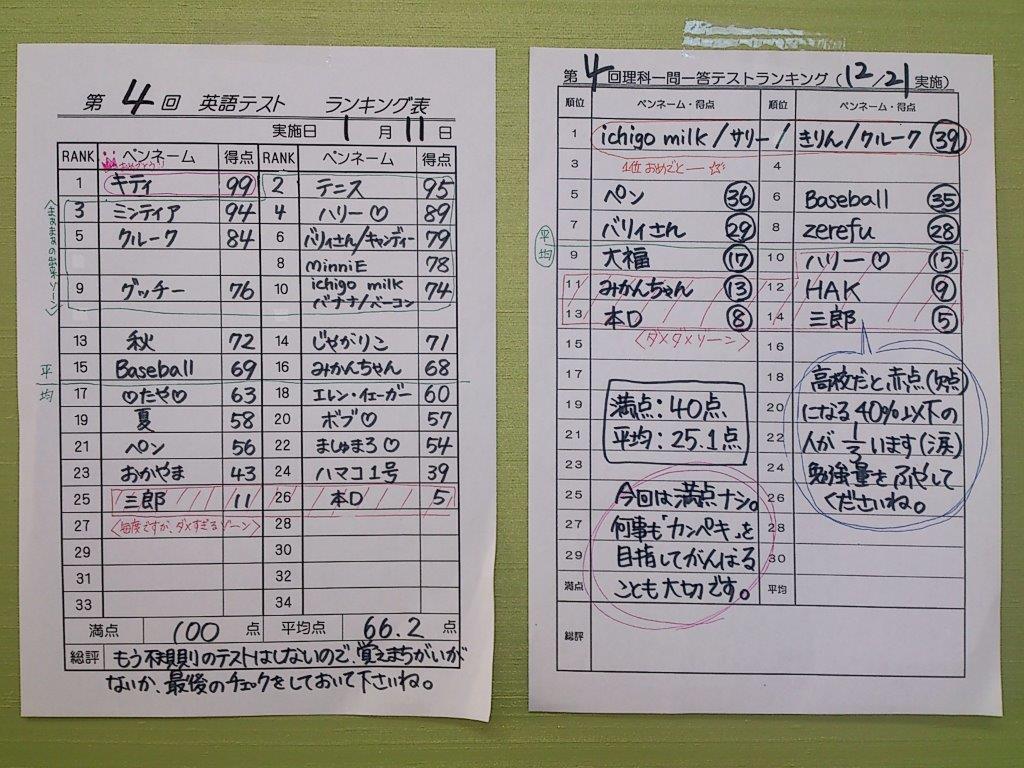 第4回 英語テスト ランキング表
実施日 1月11日
RANK ペンネーム 得点 RANK ペンネーム 得点
1 キティ 99 2 テニス 95
3 ミンティア 94 4 ハリー♡ 89
5 クルーク 84 6 バリィさん/キャンディー 79
8 minniE 78
9 グッチー 76 10 ichigo milk バナナ/ベーコン 74
まぁまぁの出来ゾーン
13 秋 72 14 じゃがりこ 71
15 Baseball 69 16 みかんちゃん 68
平均
17 ♡たや♡ 63 18 エレン・イェーガー 60
19 夏 58 20 ボブ♡ 57
21 ペン 56 22 ましゅまろ♡ 54
23 おかやま 43 24 ハマコ1号 39
25 三郎 11 26 本D 5
27 〈毎度ですが、ダメすぎるゾーン〉 28
29 30
31 32
33 34
満点 100 点 平均点 66.2 点
総評 もう不規則のテストはしないので、覚えまちがいが
ないか、最後のチェックをしておいて下さいね。
第4回理科一問一答テストランキング(12/21実施)
順位 ペンネーム・得点 順位 ペンネーム・得点
1 ichigo milk/サリー/きりん/クルーク 39
3 1位おめでとー☆ 4
5 ペン 36 6 Baseball 35
7 バリィさん 29 8 zerefu 28
平均
9 大福 17 10 ハリー♡ 15
11 みかんちゃん 13 12 HAK 9
13 本D 8 14 三郎 5
15 〈ダメダメゾーン〉 16
17 18
19 20
21 22
23 24
25 26
27 28
29 30
満点 平均
総評
満点：40点
平均：25.1点
高校だと赤点(欠点)
になる40%以下の
人が1/3います(涙)
勉強量をふやして
くださいね。
今回は満点ナシ。
何事も「カンペキ」を
目指してがんばる
ことも大切です。